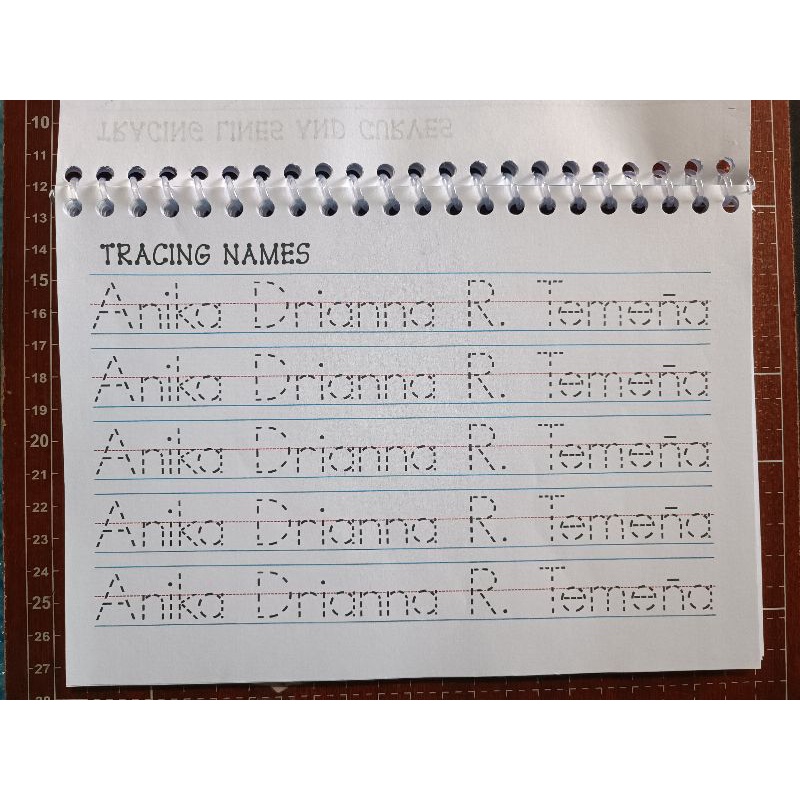 TRACING LINES AND CURVES
TRACING NAMES
Anika Drianna R. Temeña
Anika Drianna R. Temeña
Anika Drianna R. Temeña
Anika Drianna R. Temeña
Anika Drianna R. Temeña
10
11
12
13
14
15
16
17
18
19
20
21
22
23
24
25
26
27
28